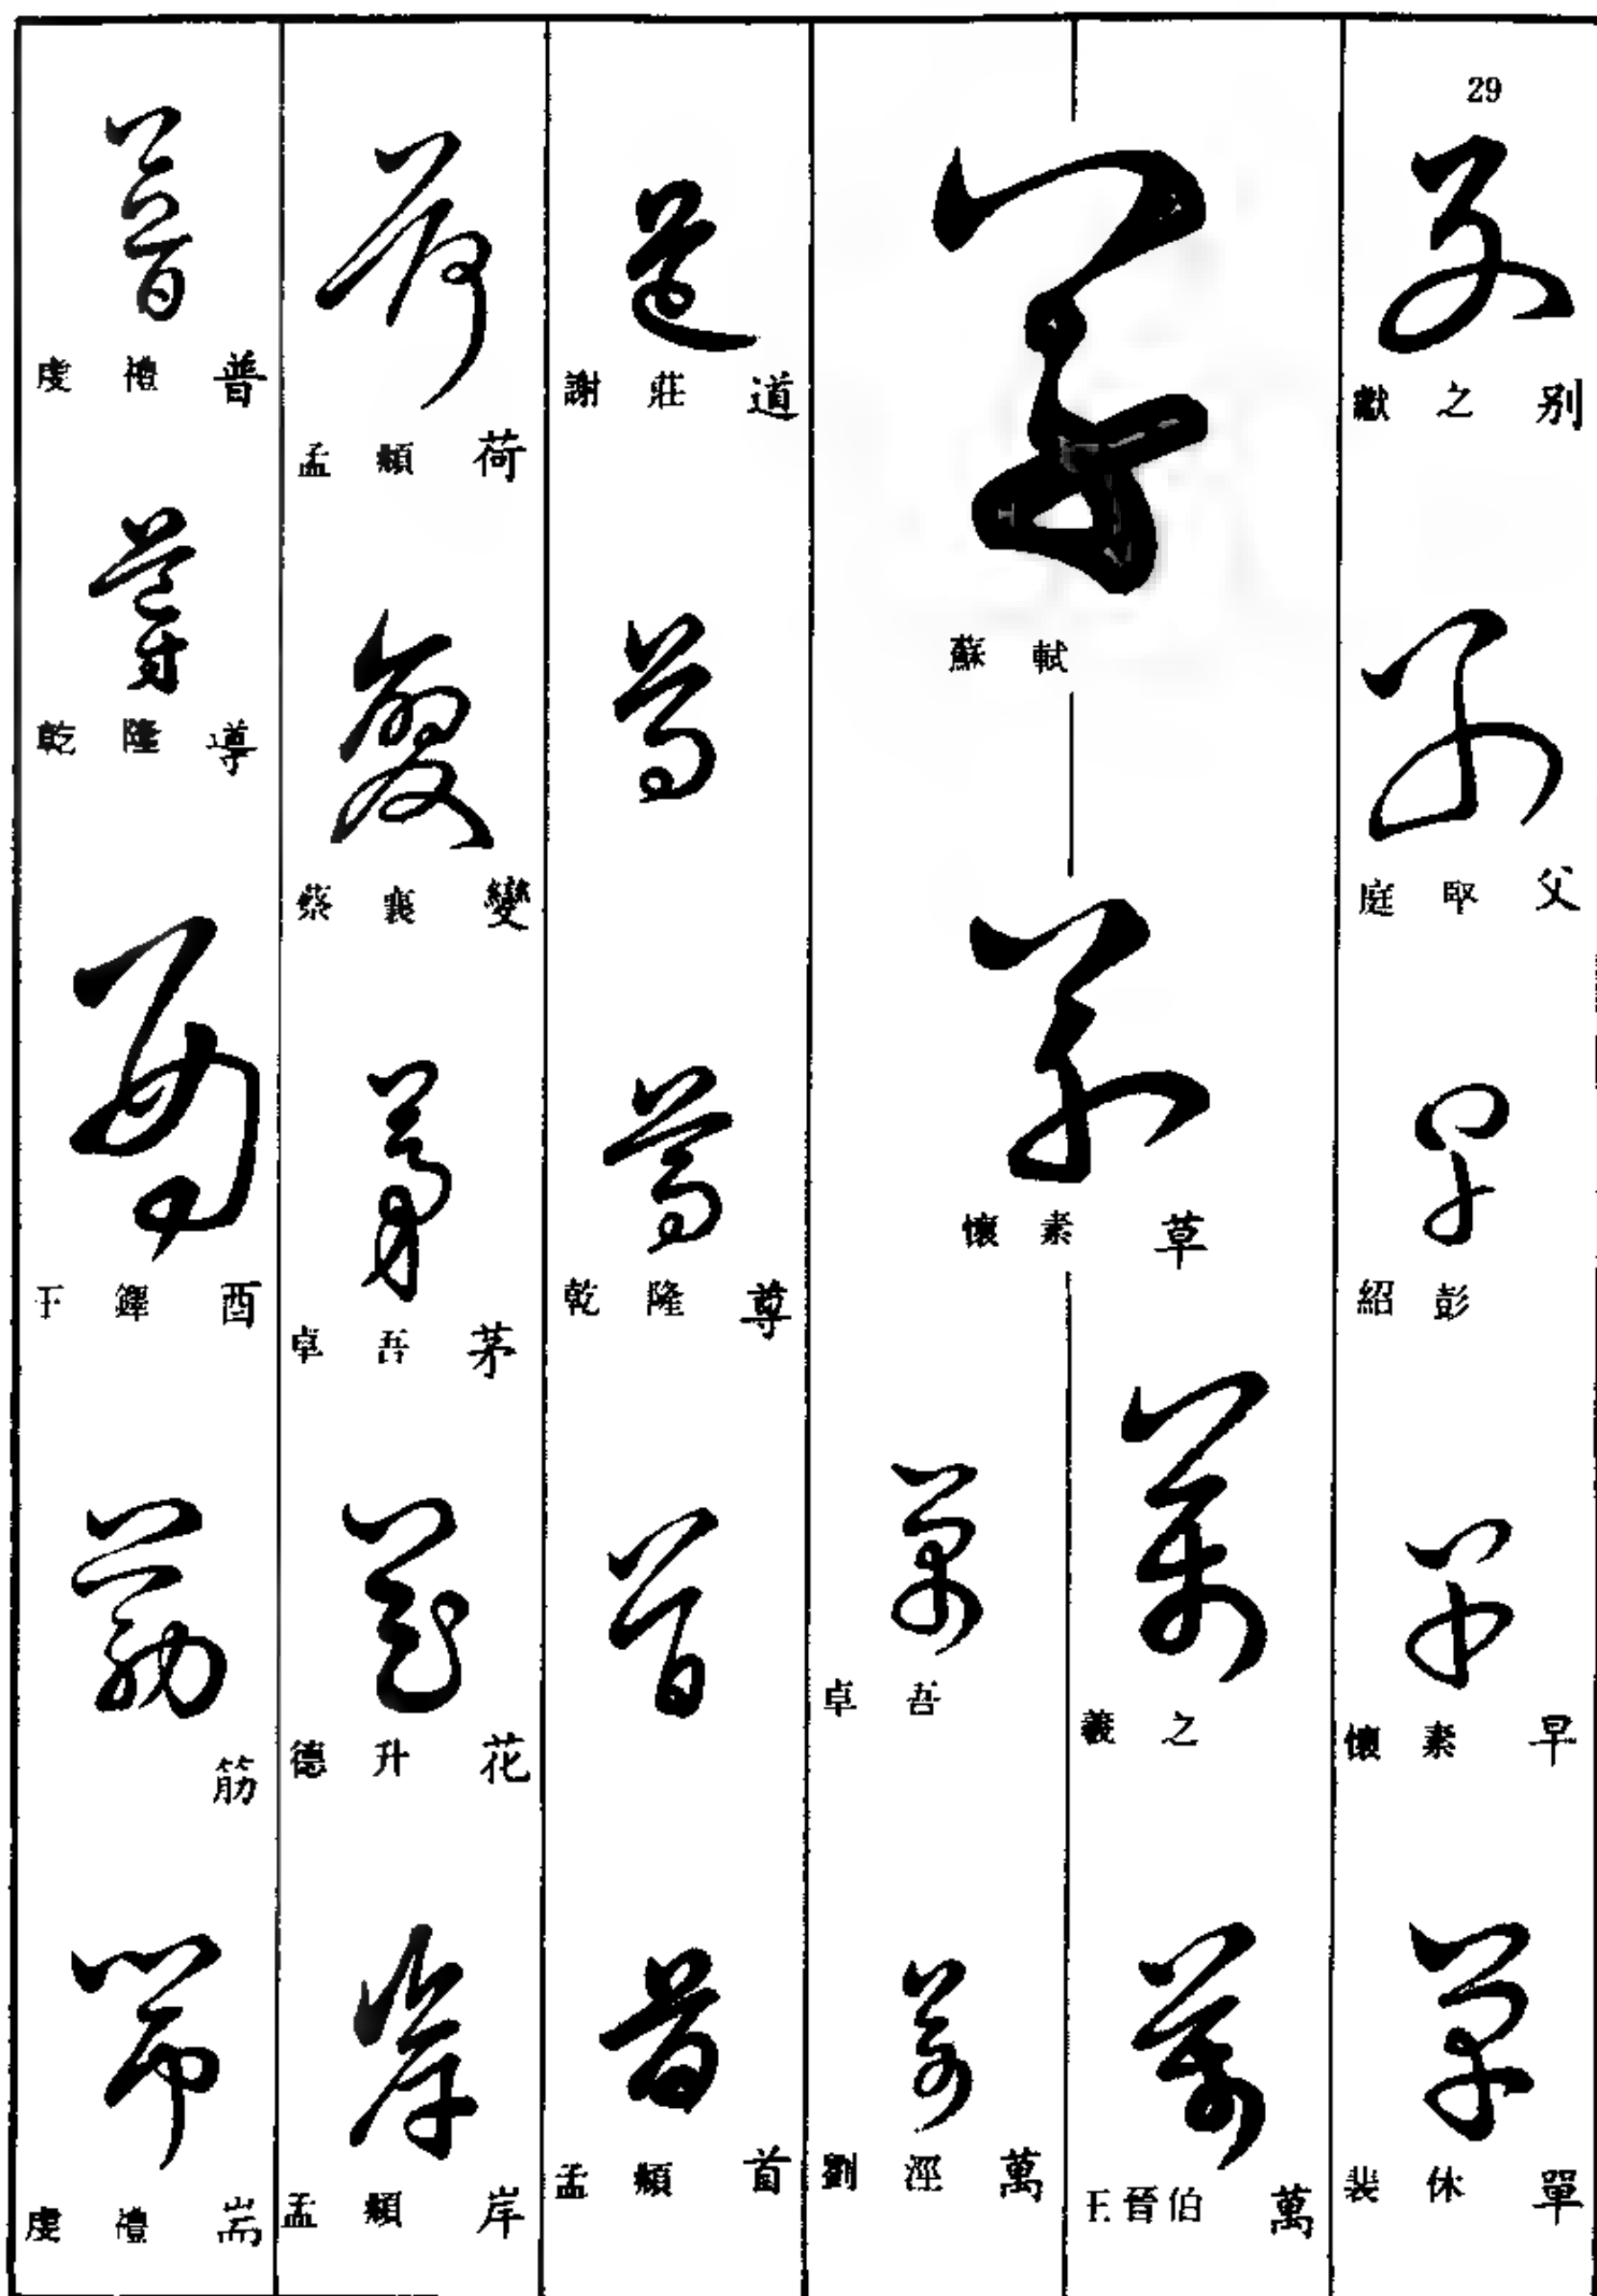 29
獻之 別
庭堅 父
紹彭
懷素 早
裴休 單
蘇軾
懷素 草
羲之
王晉伯 萬
卓吾
劉涇 萬
謝莊 道
乾隆 尊
孟頫 首
孟頫 荷
蔡襄 變
卓吾 茅
德升 花
孟頫 岸
虔禮 普
乾隆 導
王鐸 酉
筋
虔禮 耑